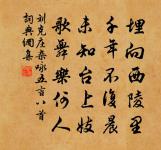 埋向西陵里
千年不復晨
未知台上妓
歌舞樂何人
刘克庄杂咏五言八首
詞典網集